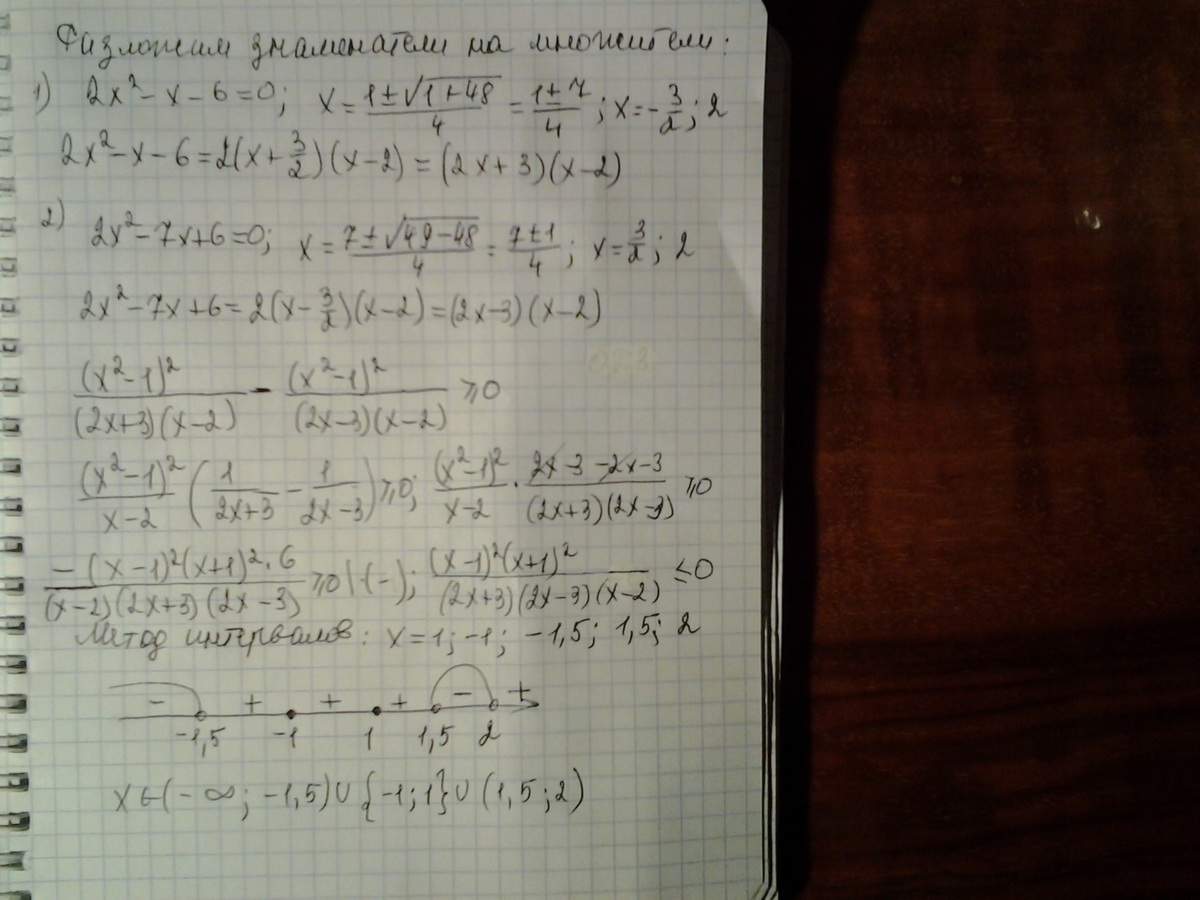 Разложим знаменатели на множители:
1) 2x² - x - 6 = 0; x = (1 ± √(1+48))/4 = (1 ± 7)/4; x = -3/2; 2
2x² - x - 6 = 2(x + 3/2)(x - 2) = (2x + 3)(x - 2)
2) 2x² - 7x + 6 = 0; x = (7 ± √(49 - 48))/4 = (7 ± 1)/4; x = 3/2; 2
2x² - 7x + 6 = 2(x - 3/2)(x - 2) = (2x - 3)(x - 2)
(x² - 1)²/((2x + 3)(x - 2)) - (x² - 1)²/((2x - 3)(x - 2)) ⩾ 0
(x² - 1)²/(x - 2) (1/(2x + 3) - 1/(2x - 3)) ⩾ 0; (x² - 1)²/(x - 2) · (2x - 3 - 2x - 3)/((2x + 3)(2x - 3)) ⩾ 0
-(x - 1)²(x + 1)² · 6/((x - 2)(2x + 3)(2x - 3)) ⩾ 0 | · (-); (x - 1)²(x + 1)²/((2x + 3)(2x - 3)(x - 2)) ≤ 0
Метод интервалов: x = 1; -1; -1,5; 1,5; 2
- + + + - +
-1,5 -1 1 1,5 2
x ∈ (-∞; -1,5) ∪ {-1; 1} ∪ (1,5; 2)